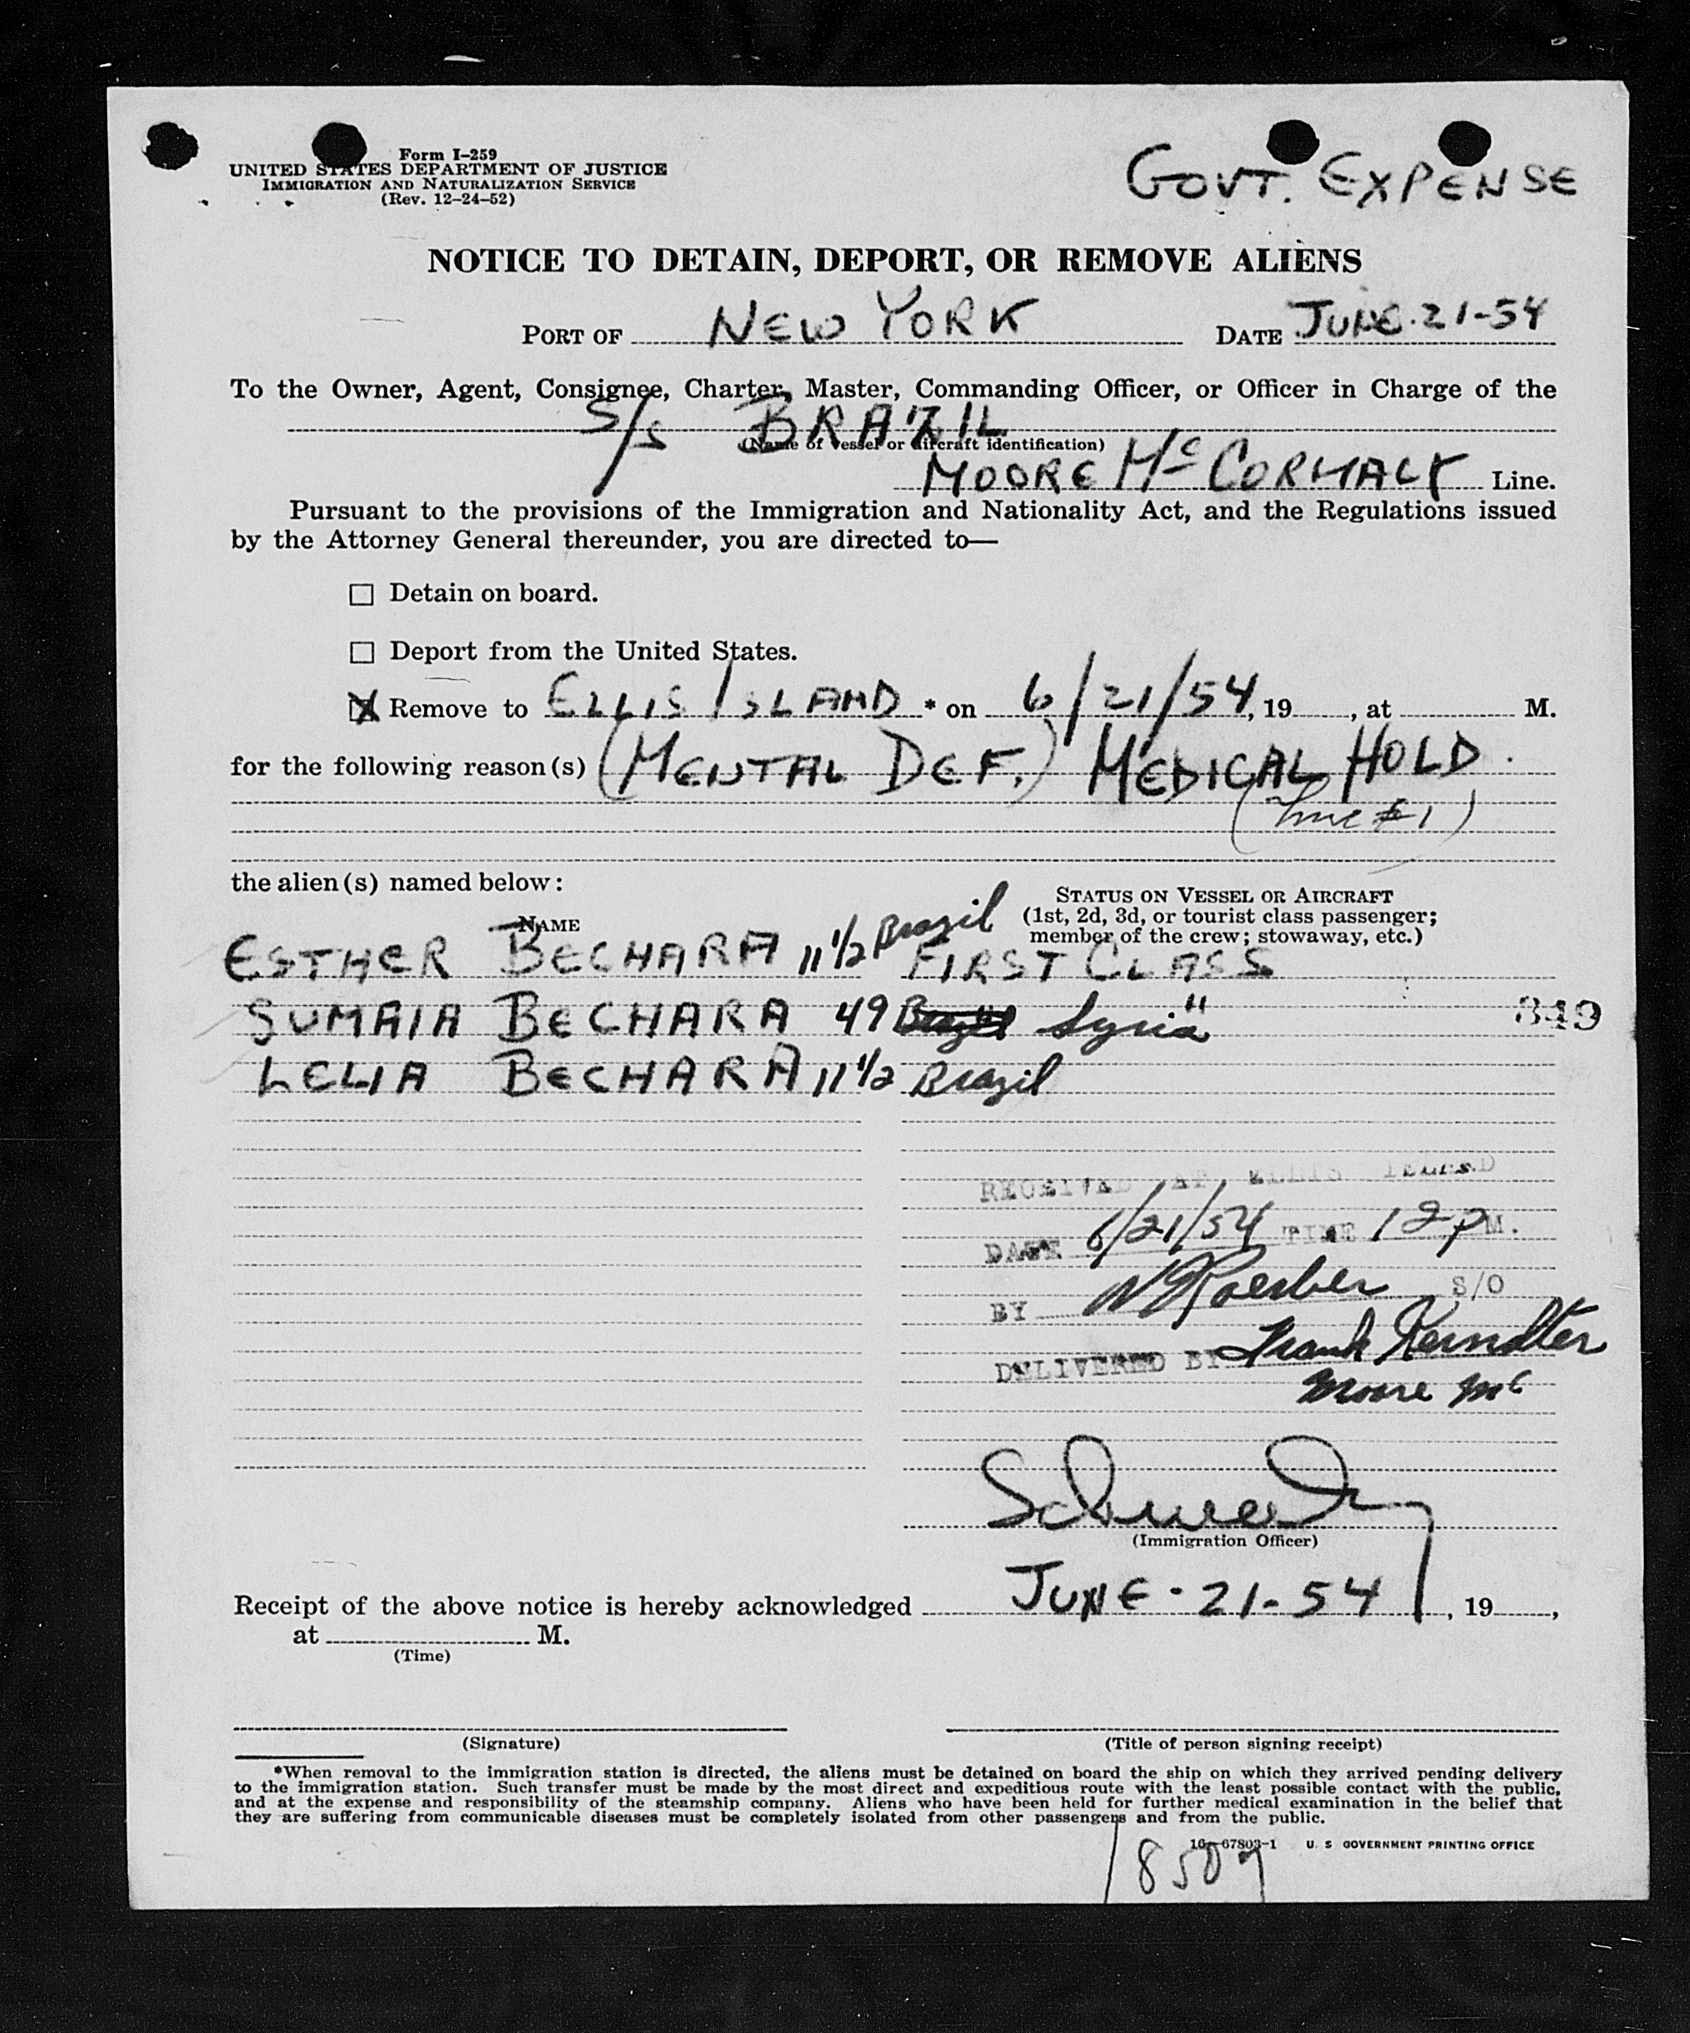 Form I-259
UNITED STATES DEPARTMENT OF JUSTICE
IMMIGRATION AND NATURALIZATION SERVICE
(Rev. 12-24-52)
GOVT. EXPENSE
NOTICE TO DETAIN, DEPORT, OR REMOVE ALIENS
PORT OF NEW YORK DATE JUNE.21-54
To the Owner, Agent, Consignee, Charter, Master, Commanding Officer, or Officer in Charge of the
S/S BRAZIL
(Name of vessel or aircraft identification)
MOORE Mc CORMACK Line.
Pursuant to the provisions of the Immigration and Nationality Act, and the Regulations issued
by the Attorney General thereunder, you are directed to—
☐ Detain on board.
☐ Deport from the United States.
☒ Remove to ELLIS ISLAND * on 6/21/54, 19 , at M.
for the following reason(s) (MENTAL DEF.) MEDICAL HOLD.
(Line #1)
the alien(s) named below:
NAME
STATUS ON VESSEL OR AIRCRAFT
(1st, 2d, 3d, or tourist class passenger;
member of the crew; stowaway, etc.)
ESTHER BECHARA 11 1/2 Brazil FIRST CLASS
SUMAIA BECHARA 49 Brazil Syria "
349
LELIA BECHARA 11 1/2 Brazil
RECEIVED AT ELLIS ISLAND
DATE 6/21/54 TIME 12 P M.
BY S/O
DELIVERED BY Frank
Moore Mc
(Immigration Officer)
Receipt of the above notice is hereby acknowledged JUNE-21-54, 19 ,
at M.
(Time)
(Signature)
(Title of person signing receipt)
*When removal to the immigration station is directed, the aliens must be detained on board the ship on which they arrived pending delivery
to the immigration station. Such transfer must be made by the most direct and expeditious route with the least possible contact with the public,
and at the expense and responsibility of the steamship company. Aliens who have been held for further medical examination in the belief that
they are suffering from communicable diseases must be completely isolated from other passengers and from the public.
16-67803-1 U. S GOVERNMENT PRINTING OFFICE